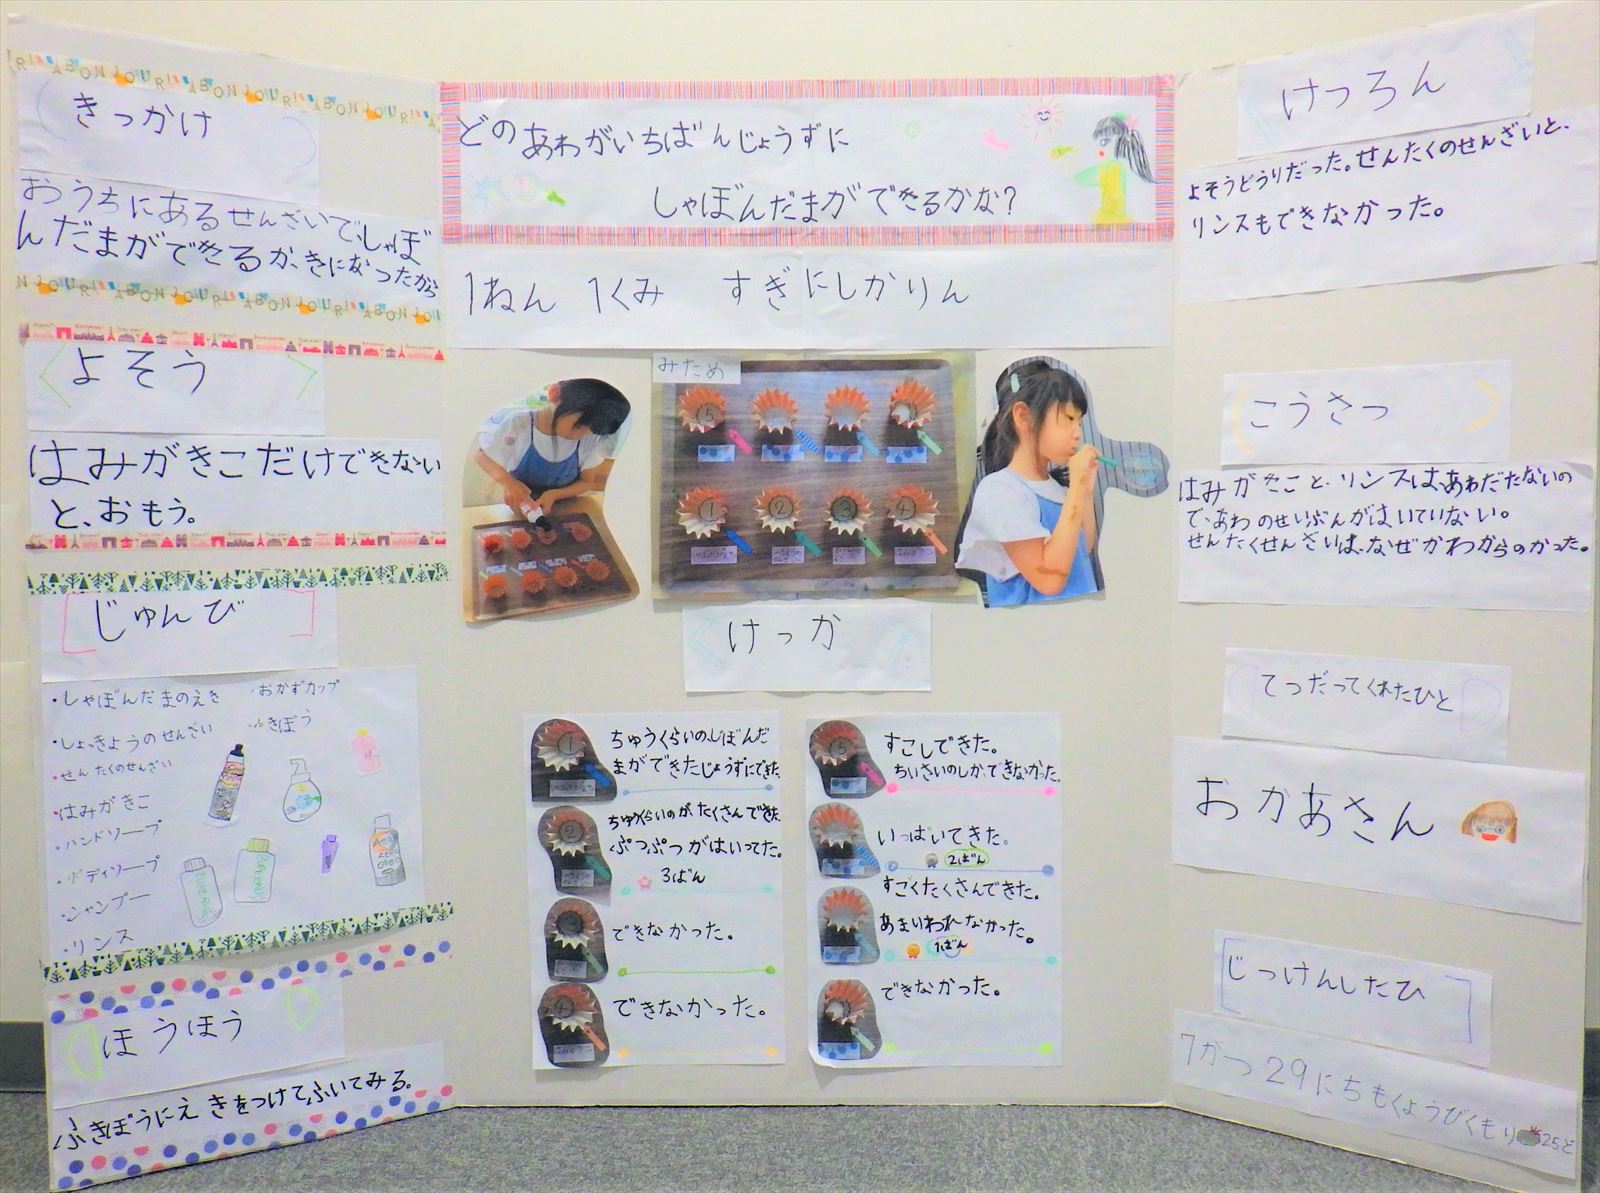 きっかけ
おうちにあるせんざいで、しゃぼ
んだまができるか、きになったから
よそう
はみがきこだけできない
と、おもう。
じゅんび
・しゃぼんだまのえき
・おかずカップ
・しょっきようのせんざい
・ふきぼう
・せんたくのせんざい
・はみがきこ
・ハンドソープ
・ボディソープ
・シャンプー
・リンス
ほうほう
ふきぼうにえきをつけてふいてみる。
どのあわがいちばんじょうずに
しゃぼんだまができるかな?
1ねん 1くみ すぎにしかりん
みため
5
1
2
3
4
けっか
1
ちゅうくらいのしぼんだ
まができたじょうずにできた。
2
ちゅうくらいのがたくさんできた。
ぷつぷつがはいってた。
3ばん
できなかった。
4
できなかった。
5
すこしできた。
ちいさいのしかできなかった。
いっぱいてきた。
2ばん
すごくたくさんできた。
あまりわれなかった。
1ばん
できなかった。
けつろん
よそうどうりだった。せんたくのせんざいと、
リンスもできなかった。
こうさつ
はみがきこと、リンスは、あわだたないの
で、あわのせいぶんがはいていない。
せんたくせんざいは、なぜかわからのかった。
てつだってくれたひと
おかあさん
じっけんしたひ
7がつ29にちもくようびくもり 25ど